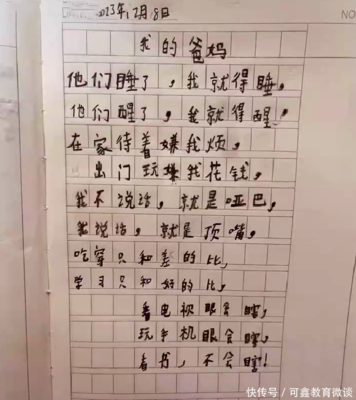 2023年12月8日
NO
我的爸妈
他们睡了，我就得睡，
他们醒了，我就得醒！
在家待着嫌我烦，
出门玩嫌我花钱，
我不说话，就是哑巴，
我说话，就是顶嘴，
吃穿只和差的比，
学习只和好的比，
看电视眼会瞎，
玩手机眼会瞎，
看书，不会瞎！
快传号/可鑫教育微谈